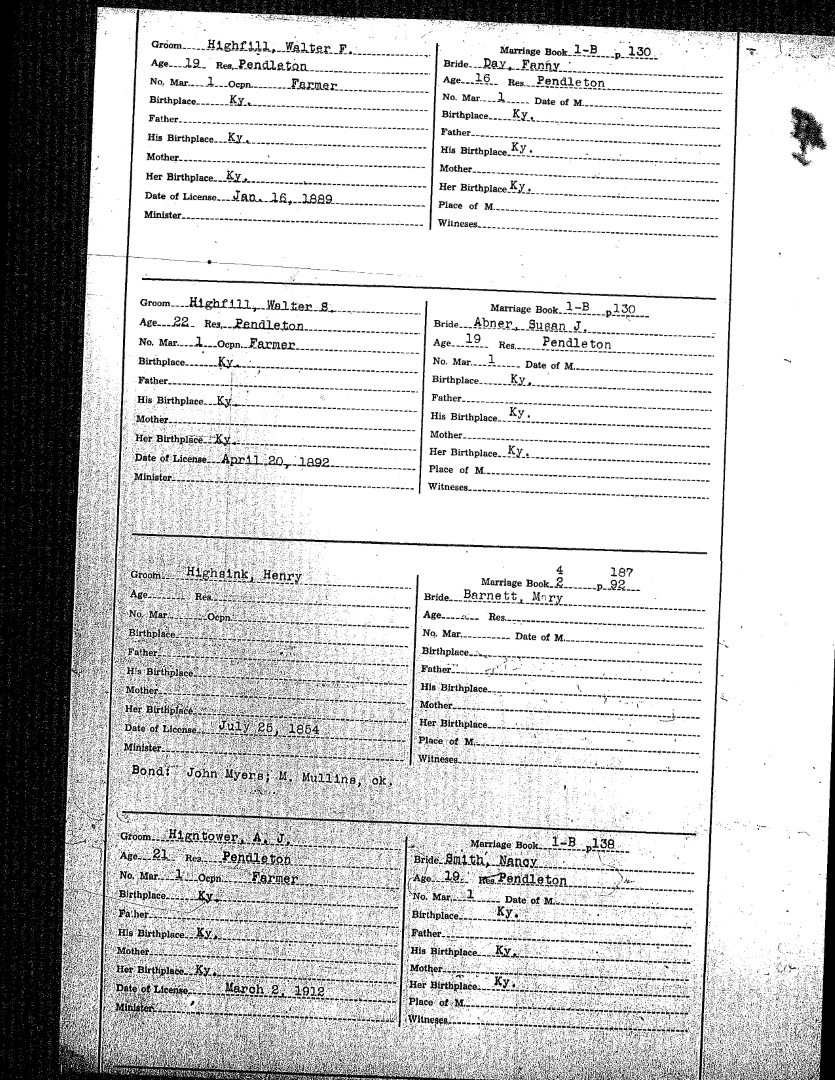 Groom Highfill, Walter F.
Age 19 Res. Pendleton
No. Mar. 1 Ocpn. Farmer
Birthplace Ky.
Father
His Birthplace Ky.
Mother
Her Birthplace Ky.
Date of License Jan. 16, 1889
Minister
Marriage Book 1-B p 130
Bride Day, Fanny
Age 16 Res Pendleton
No. Mar. 1 Date of M.
Birthplace Ky.
Father
His Birthplace Ky.
Mother
Her Birthplace Ky.
Place of M.
Witneses
Groom Highfill, Walter S.
Age 22 Res. Pendleton
No. Mar. 1 Ocpn. Farmer
Birthplace Ky.
Father
His Birthplace Ky.
Mother
Her Birthplace Ky.
Date of License April 20, 1892
Minister
Marriage Book 1-B p130
Bride Abner, Susan J.
Age 19 Res. Pendleton
No. Mar. 1 Date of M.
Birthplace Ky.
Father
His Birthplace Ky.
Mother
Her Birthplace Ky.
Place of M.
Witneses
Groom Highsink, Henry
Age Res.
No. Mar. Ocpn.
Birthplace
Father
His Birthplace
Mother
Her Birthplace
Date of License July 25, 1854
Minister
Bond: John Myers; M. Mullins, ok.
4 187
Marriage Book 2 p 92
Bride Barnett, Mary
Age Res.
No. Mar. Date of M.
Birthplace
Father
His Birthplace
Mother
Her Birthplace
Place of M.
Witneses
Groom Hightower, A. J.
Age 21 Res. Pendleton
No. Mar. 1 Ocpn. Farmer
Birthplace Ky.
Father
His Birthplace Ky.
Mother
Her Birthplace Ky.
Date of License March 2, 1912
Minister
Marriage Book 1-B p138
Bride Smith, Nancy
Age 19 Res Pendleton
No. Mar. 1 Date of M.
Birthplace Ky.
Father
His Birthplace Ky.
Mother
Her Birthplace Ky.
Place of M.
Witneses